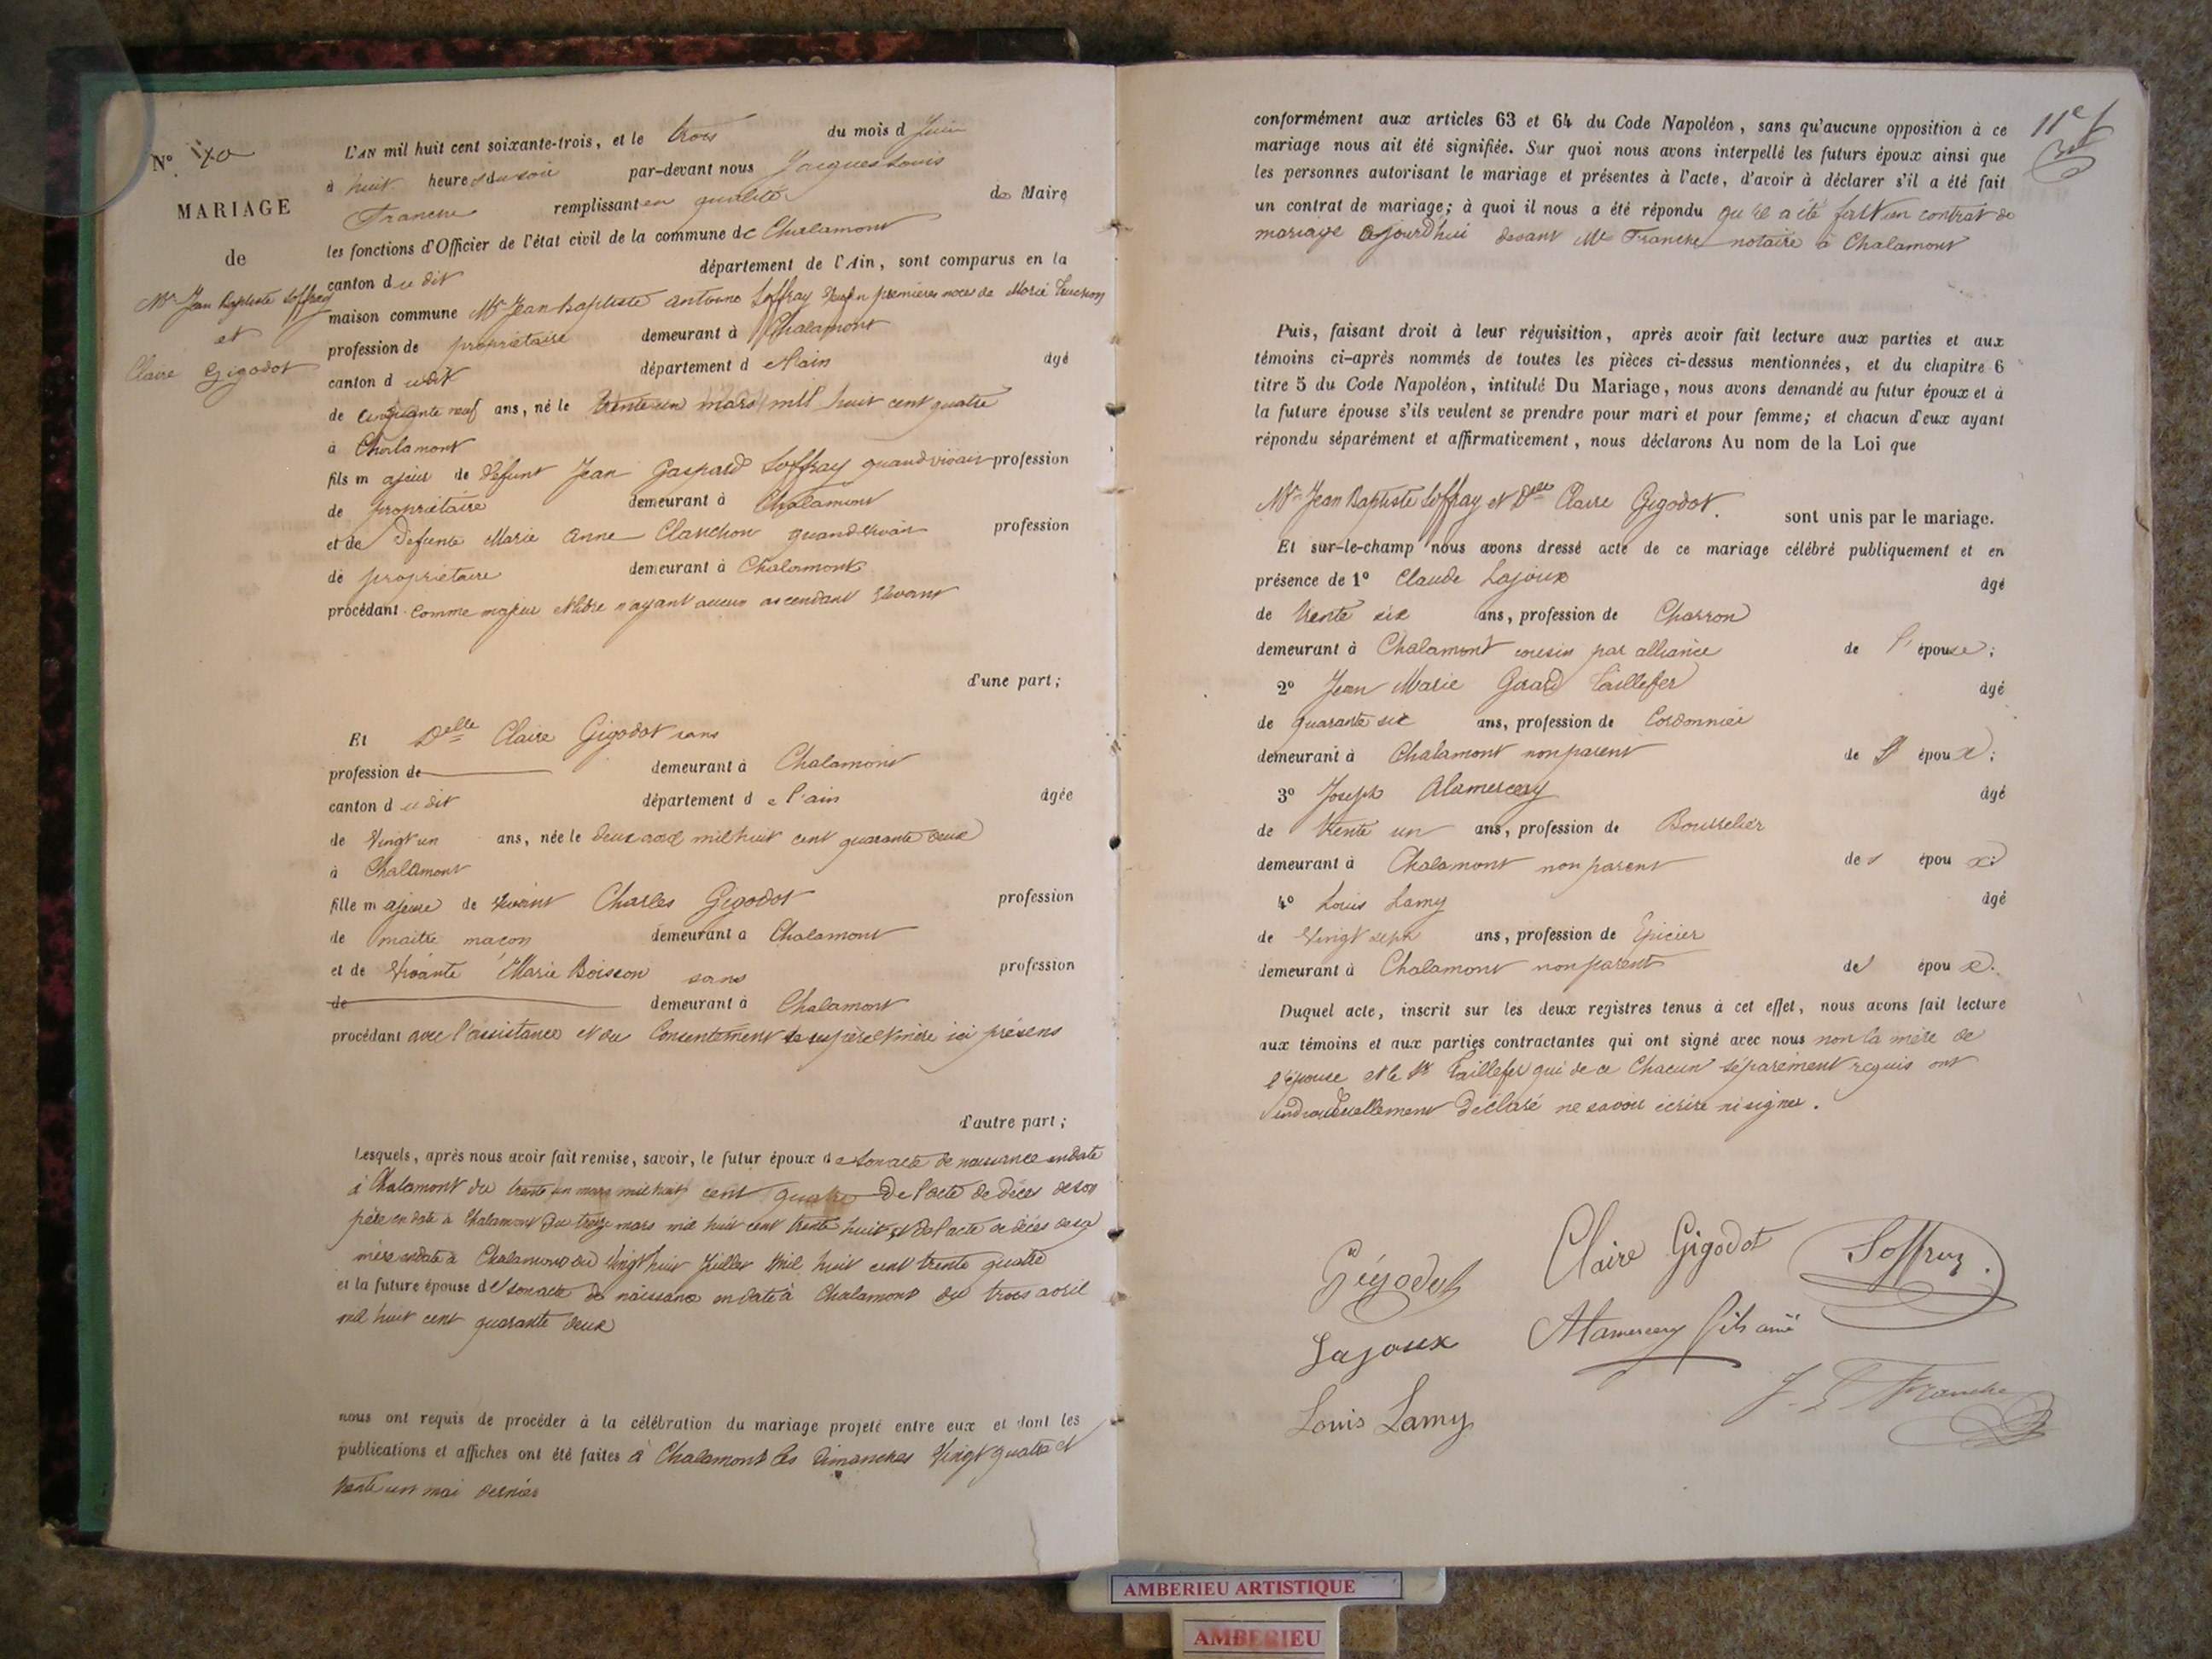 N° 10
MARIAGE
de
Mr Jean Baptiste Soffray
et
Claire Gigodot
L'AN mil huit cent soixante-trois, et le trois du mois d Juin
à huit heures du soir par-devant nous Jacques Louis
Franche remplissant en qualité de Maire
les fonctions d'Officier de l'état civil de la commune de Chalamont
canton du dit département de l'Ain, sont comparus en la
maison commune Mr Jean Baptiste antoine Soffray veuf en premières noces de Marie
profession de propriétaire demeurant à Chalamont
canton du dit département de l'ain âgé
de cinquante neuf ans, né le trente un mars mil huit cent quatre
à Chalamont
fils majeur de défunt Jean Gaspard Soffray quand vivait profession
de propriétaire demeurant à Chalamont
et de défunte Marie Anne Clauchon quand vivait profession
de propriétaire demeurant à Chalamont
procédant comme majeur et libre n'ayant aucun ascendant vivant
d'une part ;
Et Delle Claire Gigodot sans
profession de demeurant à Chalamont
canton du dit département de l'ain âgée
de vingt un ans, née le deux avril mil huit cent quarante deux
à Chalamont
fille majeure de vivant Charles Gigodot profession
de maitre maçon demeurant à Chalamont
et de vivante Marie Boisson sans profession
de demeurant à Chalamont
procédant avec l'assistance et du Consentement de ses père et mère ici présens
d'autre part ;
Lesquels, après nous avoir fait remise, savoir, le futur époux de son acte de naissance en date
à Chalamont du trente un mars mil huit cent quatre De l'acte de décès de son
père en date à Chalamont du treize mars mil huit cent trente huit et de l'acte de décès de sa
mère en date à Chalamont du vingt huit Juillet mil huit cent trente quatre
et la future épouse de son acte de naissance en date à Chalamont du trois avril
mil huit cent quarante deux
nous ont requis de procéder à la célébration du mariage projeté entre eux et dont les
publications et affiches ont été faites à Chalamont les Dimanches vingt quatre et
trente un mai dernier
11e
conformément aux articles 63 et 64 du Code Napoléon, sans qu'aucune opposition à ce
mariage nous ait été signifiée. Sur quoi nous avons interpellé les futurs époux ainsi que
les personnes autorisant le mariage et présentes à l'acte, d'avoir à déclarer s'il a été fait
un contrat de mariage; à quoi il nous a été répondu qu'il a été fait un contrat de
mariage ajourd'hui devant Me Franche notaire à Chalamont
Puis, faisant droit à leur réquisition, après avoir fait lecture aux parties et aux
témoins ci-après nommés de toutes les pièces ci-dessus mentionnées, et du chapitre 6
titre 5 du Code Napoléon, intitulé Du Mariage, nous avons demandé au futur époux et à
la future épouse s'ils veulent se prendre pour mari et pour femme; et chacun d'eux ayant
répondu séparément et affirmativement, nous déclarons Au nom de la Loi que
Mr Jean Baptiste Soffray et Delle Claire Gigodot. sont unis par le mariage.
Et sur-le-champ nous avons dressé acte de ce mariage célébré publiquement et en
présence de 1° Claude Lajoux âgé
de trente six ans, profession de Charron
demeurant à Chalamont cousin par alliance de l'épouse ;
2° Jean Marie Girard Taillefer âgé
de quarante six ans, profession de Cordonnier
demeurant à Chalamont non parent des époux ;
3° Joseph Alamercery âgé
de trente un ans, profession de Bourrelier
demeurant à Chalamont non parent des époux ;
4° Louis Lamy âgé
de vingt sept ans, profession de Epicier
demeurant à Chalamont non parent des époux.
Duquel acte, inscrit sur les deux registres tenus à cet effet, nous avons fait lecture
aux témoins et aux parties contractantes qui ont signé avec nous non la mère de
l'épouse et le Sr Taillefer qui de ce Chacun séparément requis ont
individuellement déclaré ne savoir écrire ni signer.
Gigodot Claire Gigodot Soffray
Lajoux Alamercery fils ainé
Louis Lamy J. L. Franche
AMBERIEU ARTISTIQUE
AMBERIEU